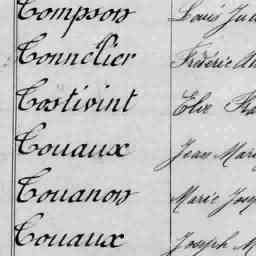 Tompson Louis
Tonnelier Frédéric
Tostivint Élie
Touaux Jean Mari
Touanon Marie Jose
Touaux Joseph M